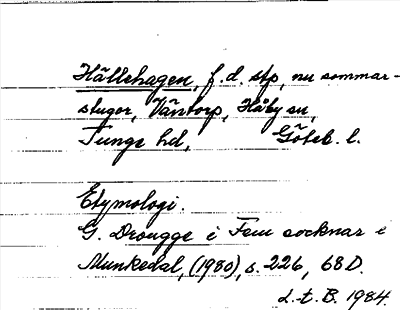 Hällehagen, f.d. stp, nu sommar-
stugor, Väntorp, Håby sn,
Tunge hd, Göteb. l.
Etymologi.
G. Drougge i Fem socknar i
Munkedal, (1980), s. 226, 68D.
L.t.B. 1984.